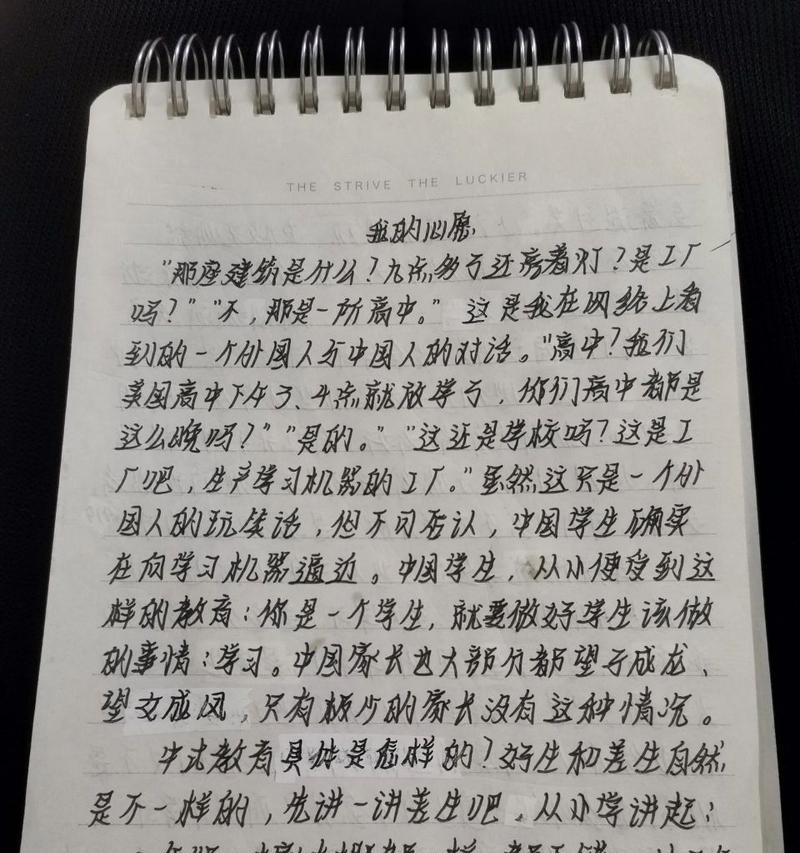 THE STRIVE THE LUCKIER
我的心愿
“那座建筑是什么？九点多了还亮着灯？是工厂
吗？”“不，那是一所高中。”这是我在网络上看
到的一个外国人与中国人的对话。“高中？我们
美国高中下午3、4点就放学了，你们高中都是
这么晚吗？”“是的。”“这还是学校吗？这是工
厂吧，生产学习机器的工厂。”虽然这只是一个外
国人的玩笑话，但不可否认，中国学生确实
在向学习机器逼近。中国学生，从小便受到这
样的教育：你是一个学生，就要做好学生该做
的事情：学习。中国家长也大部分都望子成龙、
望女成凤，只有极少的家长没有这种情况。
中式教育具体是怎样的？好生和差生自然
是不一样的，先讲一讲差生吧，从小学讲起：